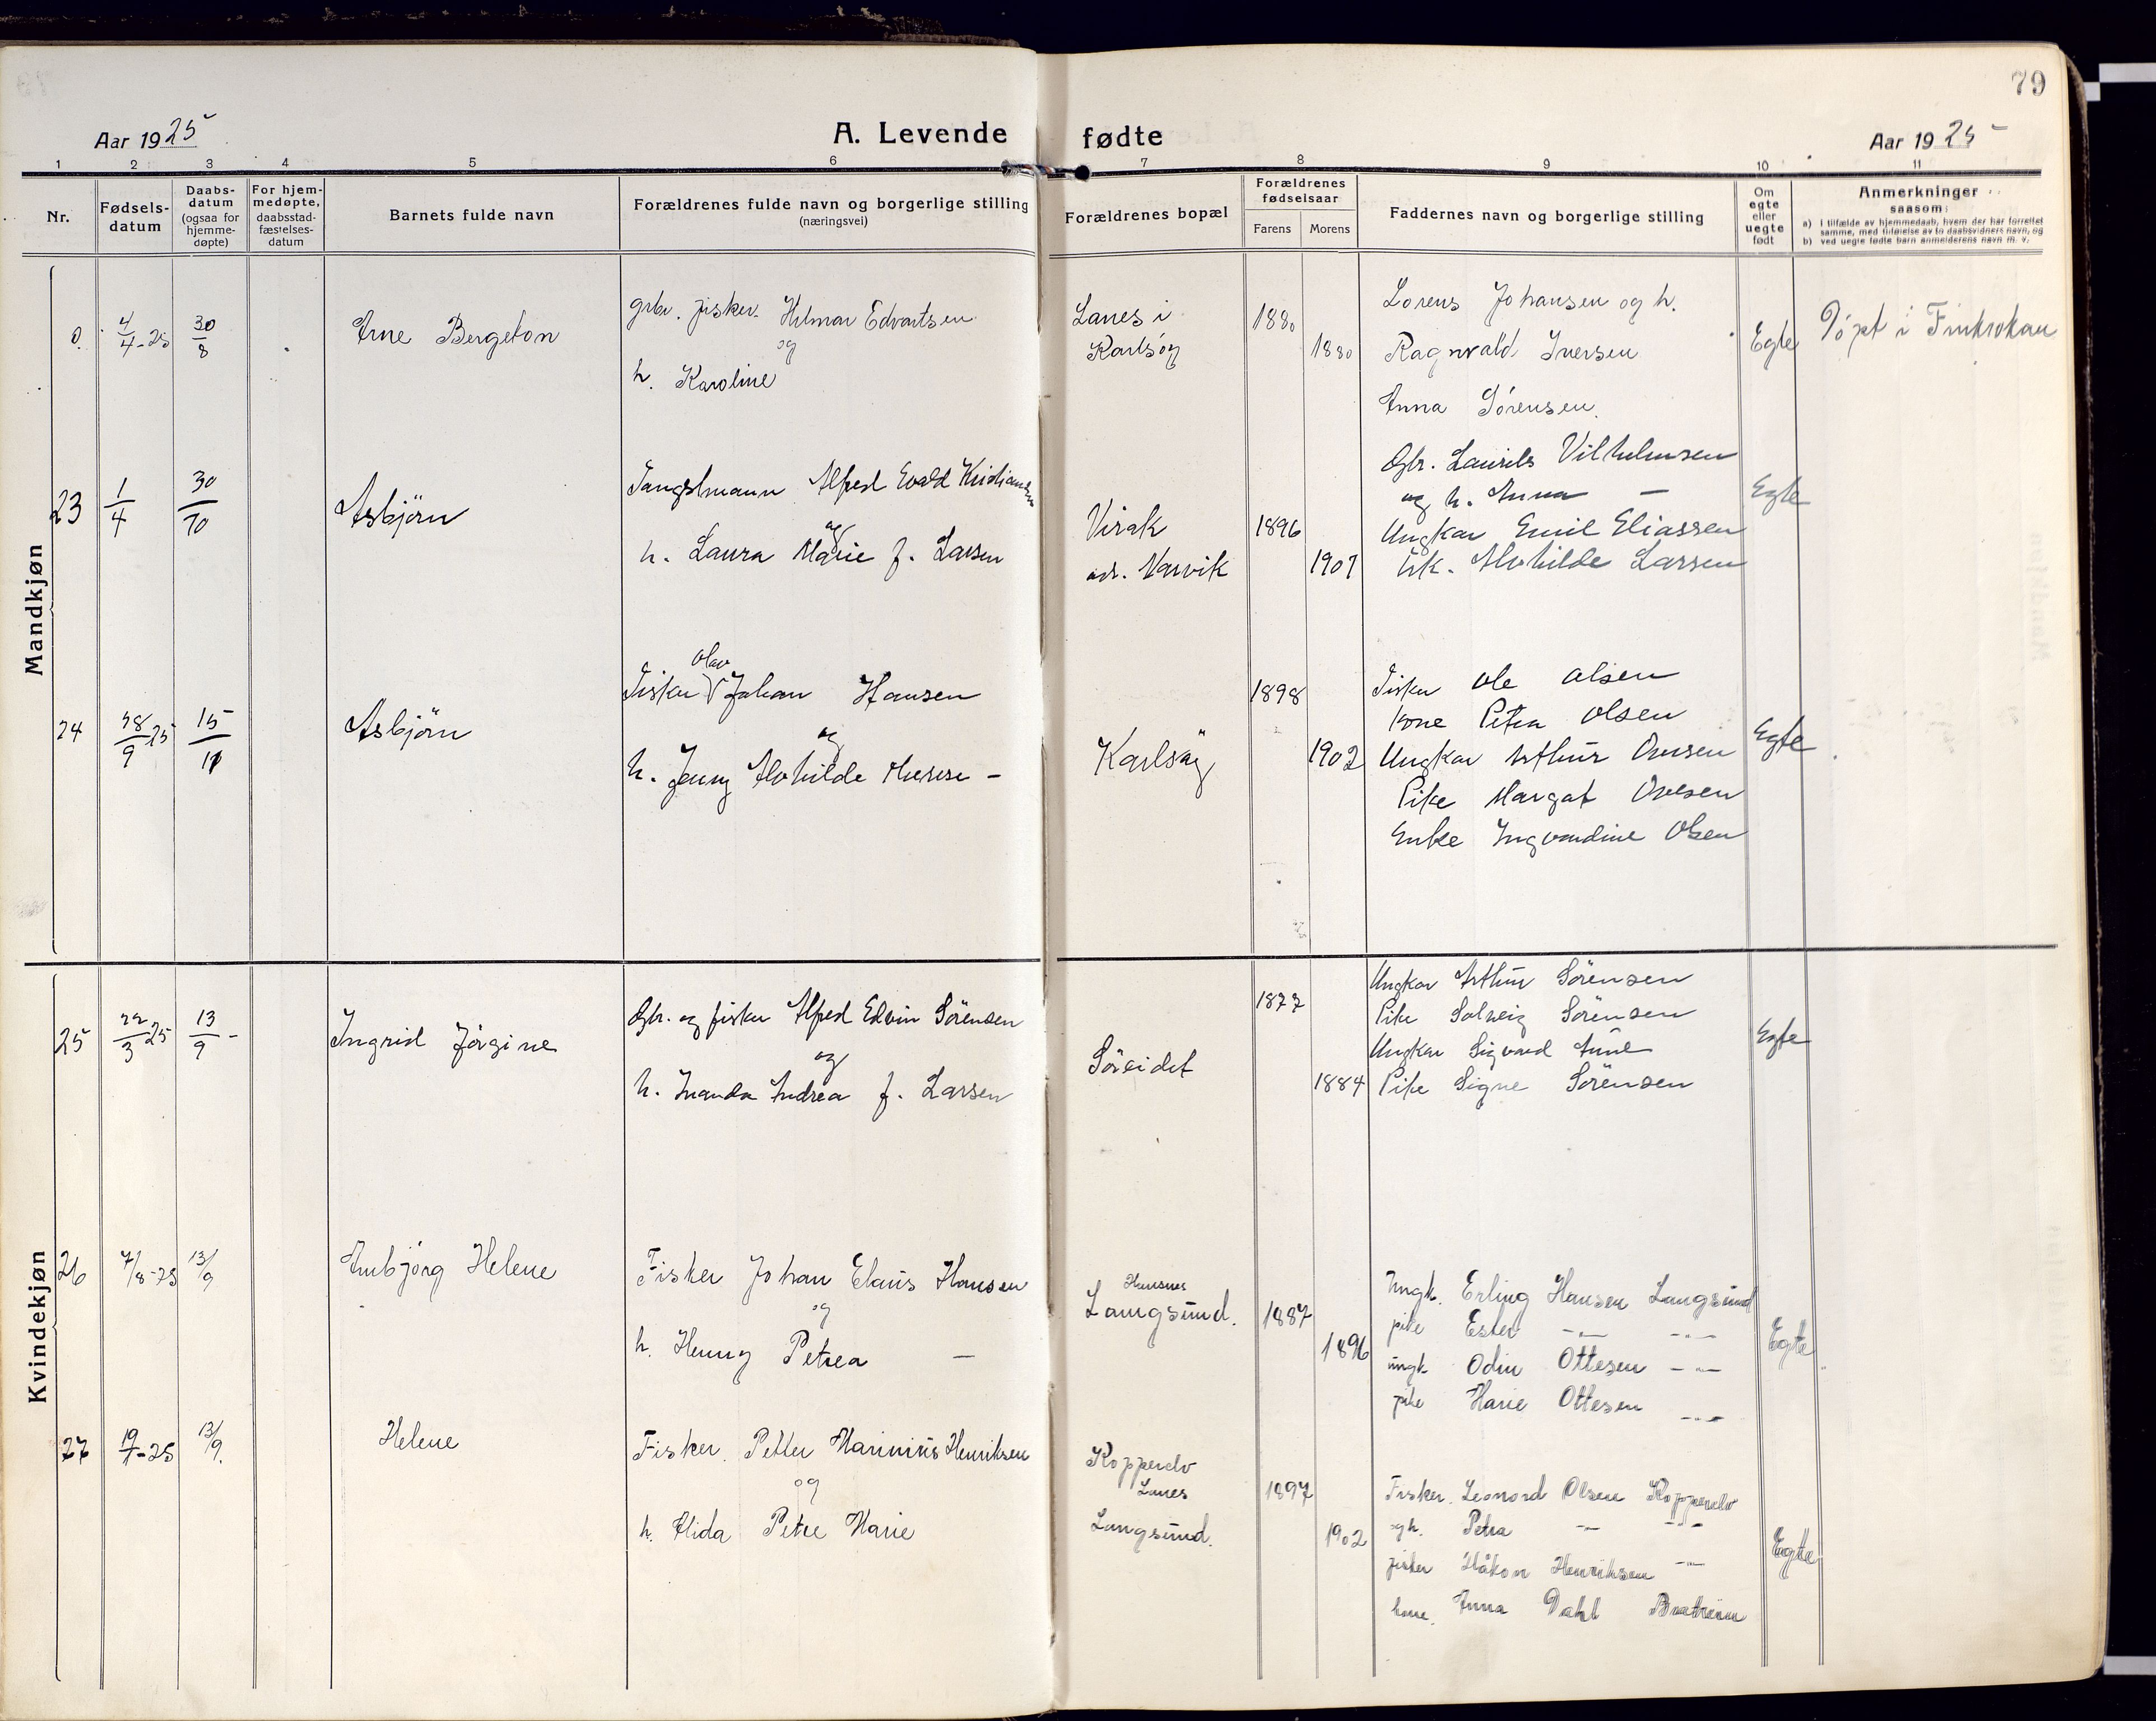 79
Aar 1925
A. Levende fødte
Aar 1925
1 2 3 4 5 6 7 8 9 10 11
Nr.
Fødsels-
datum
Daabs-
datum
(ogsaa for
hjemme-
døpte)
For hjem-
medøpte,
daabsstad-
fæstelses-
datum
Barnets fulde navn
Forældrenes fulde navn og borgerlige stilling
(næringsvei)
Forældrenes bopæl
Forældrenes
fødselsaar
Farens Morens
Faddernes navn og borgerlige stilling
Om
egte
eller
uegte
født
Anmerkninger
saasom:
a) i tilfælde av hjemmedaab, hvem der har forrettet
samme, med tilføielse av to daabsvidners navn, og
b) ved uegte fødte barn anmelderens navn m. v.
Mandkjøn
0. 4/4-25 30/8
Arne Bergeton
grbr. fisker Hilmar Edvartsen
og
h. Karoline
Lanes i
Karlsøy
1880
1880
Lorens Johansen og h.
Ragnvald Iversen
Anna Sörensen.
Egte
Döpt i Finkroken
23 1/4 30/10
Asbjörn
Alfred Evald Kristiansen
og
h. Laura Marie f. Larsen
adr. Narvik
1896
1901
Gbr. Laurits Vilhelmsen
og h. Anna —
Ungkar Emil Eliassen
Pk. Alvhilde Larsen
Egte
24 28/9 25 15/11
Asbjörn
Olav
Fisker V Johan Hansen
og
h. Jenny Alvhilde –
Karlsöy
1898
1902
Fisker Ole Olsen
Kone Petra Olsen
Ungkar Arthur Ovesen
Pike Margat Ovesen
Enke Ingvardine Olsen
Egte
Kvindekjøn
25 22/3 25 13/9 -
Ingrid Jörgine
Gbr. og fisker Alfred Edvin Sörensen
og
h. Andrea f. Larsen
Söreidet
1877
1884
Ungkar Arthur Sörensen
Pike Solveig Sörensen
Ungkar Sigvard Aune
Pike Signe Sörensen
Egte
26 7/8-25 13/9
Ambjörg Helene
Fisker Johan Elaus Hansen
og
h. Henny Petrea —
Hansnes
Langsund.
1887
1896
Ungk. Erling Hansen Langsund
pike Ester -"- -"-
ungk Odin Ottesen -"-
pike Marie Ottesen -"-
Egte
27 19/1-25 13/9.
Helene
Fisker. Petter Marinius Henriksen
og
h. Alida Petre Marie
Kopperelv
Lanes
Langsund.
1897
1902
Fisker. Leonard Olsen Kopperelv
og h. Petra -"- -"-
fisker Håkon Henriksen -"-
kone. Anna Dahl
Egte